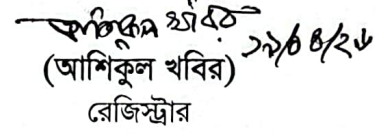 আশিকুল খবির ১৯/০৪/২৬
(আশিকুল খবির)
রেজিস্ট্রার